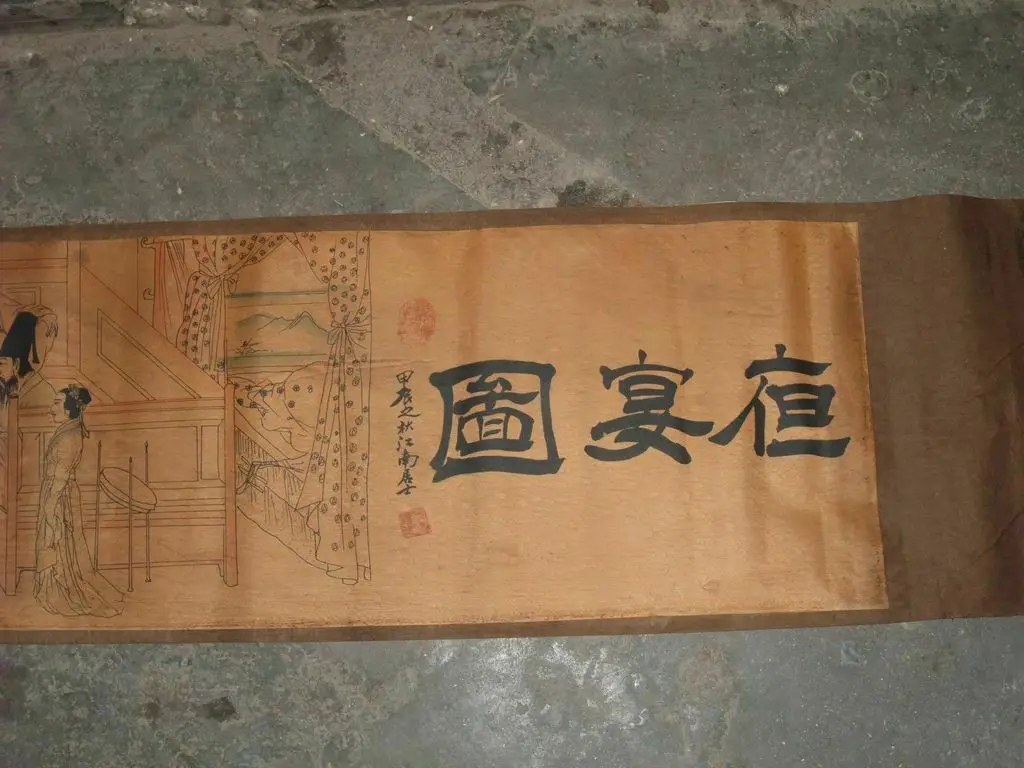 夜宴圖
甲辰之秋江南居士